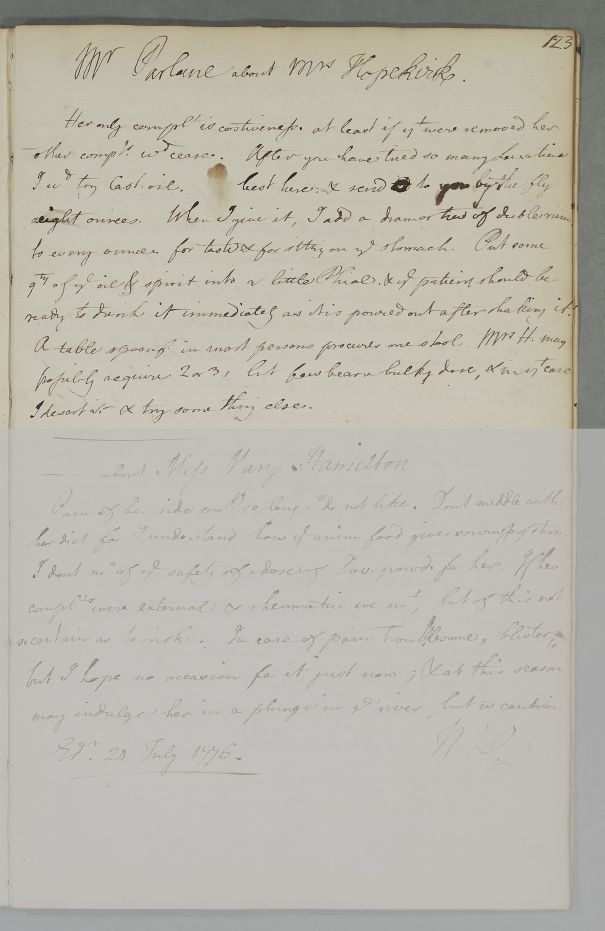 123
Mr Parlane about Mrs Hopekirk.
Her only complt is costiveness. at least if yt were removed her
other complts wd cease. After you have tried so many Laxatives
I wd try Cast. oil. best here & send it to you by the fly
eight ounces. When I give it, I add a dram or two of double rum
to every ounce. for taste & for sitting on ye stomach. Put some
qty of ye oil & spirit into a little Phial. & ye patient should be
ready to drink it immediately as it is poured out after shaking it.
A table spoonf. in most persons procures one stool. Mrs H. may
possibly require 2 or 3, but few bear a bulky dose, & in yt case
I desert it & try some thing else.
about Miss Mary Hamilton.
Pain of her side contd so long I do not like. Dont meddle with
her diet for I understand how ye anim. food gives sourness of stom.
I dont no of ye safety of a dose of Dov. powd. for her. If her
complts were external & rheumatic we mt, but of this not
so certain as to risk. In case of pain troublesome, blister,
but I hope no occasion for it just now; & at this season
may indulge her in a plunge in ye river, but wt caution.
Edr. 24 July 1776.
W. C.